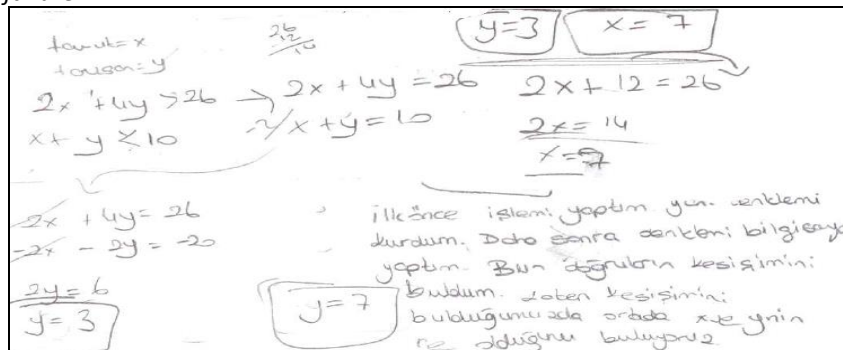 tavuk = x
tavşan = y
26
12
2x + 4y > 26
x + y < 10
→ 2x + 4y = 26
-2/ x + y = 10
y = 3
x = 7
2x + 12 = 26
2x = 14
x = 7
-2x + 4y = 26
-2x - 2y = -20
2y = 6
y = 3
y = 7
ilkönce işlemi yaptım yani denklemi
kurdum. Daha sonra denklemi bilgisaya
yaptım. Bun doğruların kesişimini
buldum. zaten kesişimini
bulduğumuzda ortada x ve ynin
ne olduğunu buluyoruz